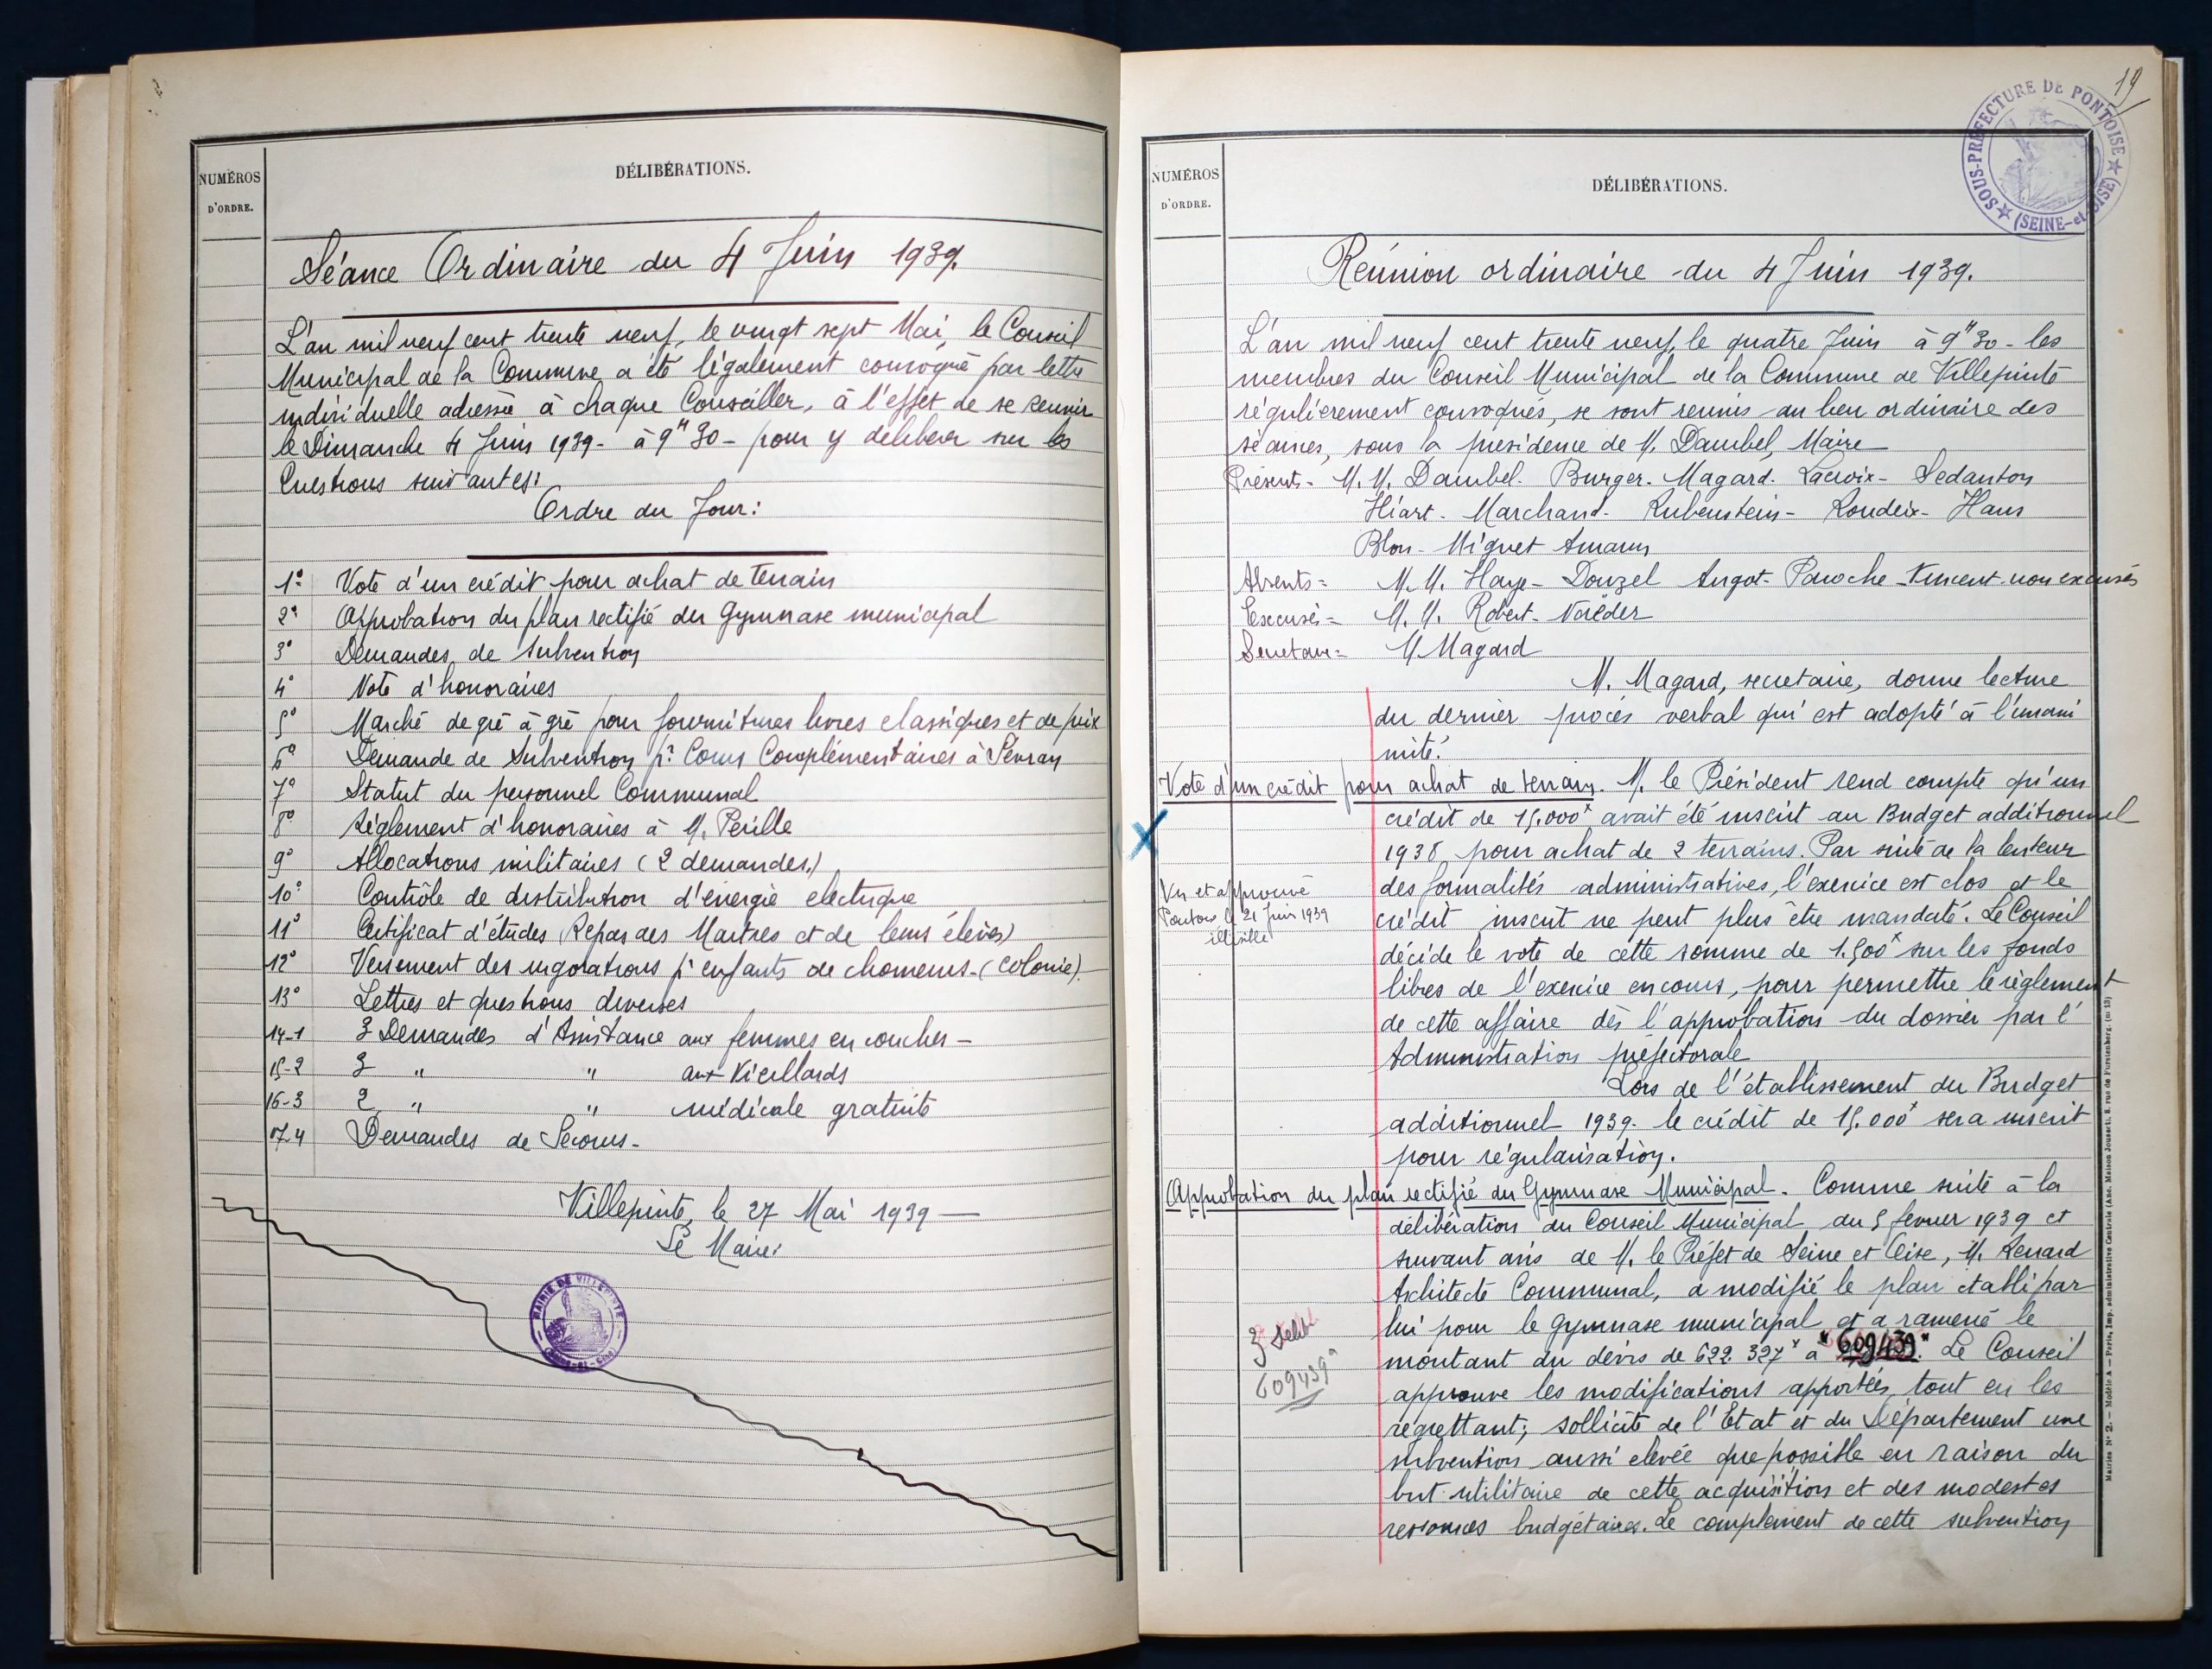 NUMÉROS
D'ORDRE.
DÉLIBÉRATIONS.
Séance Ordinaire du 4 Juin 1939.
L'an mil neuf cent trente neuf, le vingt sept Mai, le Conseil
Municipal de la Commune a été légalement convoqué par lettre
individuelle adressée à chaque Conseiller, à l'effet de se réunir
le Dimanche 4 Juin 1939 - à 9H30 - pour y délibérer sur les
Questions suivantes:
Ordre du Jour:
1° Vote d'un crédit pour achat de terrain
2° Approbation du plan rectifié du Gymnase municipal
3° Demandes de Subvention
4° Vote d'honoraires
5° Marché de gré à gré pour fournitures livres classiques et de prix
6° Demande de Subvention pr Cours Complémentaires à Sevran
7° Statut du personnel Communal
8° Règlement d'honoraires à M. Perille
9° Allocations militaires (2 demandes.)
10° Contrôle de distribution d'énergie electrique
11° Certificat d'études Repas des Maitres et de leurs élèves)
12° Versement des pr enfants de chomeurs - (Colonie).
13° Lettres et questions diverses
14-1 3 Demandes d'Assistance aux femmes en couches -
15-2 3 " " aux Vieillards
16-3 2 " " médicale gratuite
17-4 Demandes de Secours -
Villepinte, le 27 Mai 1939 -
Le Maire:
MAIRIE DE VILLEPINTE
(Seine-et-Oise)
19
SOUS-PRÉFECTURE DE PONTOISE
(SEINE-et-OISE)
NUMÉROS
D'ORDRE.
DÉLIBÉRATIONS.
Réunion ordinaire du 4 Juin 1939.
L'an mil neuf cent trente neuf, le quatre Juin à 9H30 - les
membres du Conseil Municipal de la Commune de Villepinte
régulièrement convoqués, se sont reunis au lieu ordinaire des
séances, sous la présidence de M. Daubel, Maire
Présents - M.M. Daubel. Burger. Magard. Lacroix - Ledanton
Hiart - Marchand - Rubenstein - Roudeix - Haus
Blon - Miguet Amann
Absents = M.M. Haye - Douzel Angot - Paroche - Vincent non excusés
Excusés = M.M. Robert - Noréder
Secretaire = M Magard
M. Magard, secretaire, donne lecture
du dernier procès verbal qui est adopté à l'unani
mité.
Vote d'un crédit pour achat de terrain. M. le Président rend compte qu'un
crédit de 15.000x avait été inscrit au Budget additionnel
1938 pour achat de 2 terrains. Par suite de la lenteur
des formalités administratives, l'exercice est clos et le
crédit inscrit ne peut plus être mandaté. Le Conseil
décide le vote de cette somme de 1.500x sur les fonds
libres de l'exercice en cours, pour permettre le règlement
de cette affaire dès l'approbation du dossier par l'
Administration préfectorale
Lors de l'établissement du Budget
additionnel 1939 - le crédit de 15.000x sera inscrit
pour régularisation.
X
Vu et approuvé
Pontoise le 21 Juin 1939
illisible
Approbation du plan rectifié du Gymnase Municipal. Comme suite à la
délibération du Conseil Municipal, du 5 fevrier 1939 et
suivant avis de M. le Préfet de Seine et Oise, M. Renard
Architecte Communal, a modifié le plan établi par
lui pour le gymnase municipal et a ramené le
montant du dévis de 622.327x à "609439". Le Conseil
approuve les modifications apportées, tout en les
regrettant; sollicite de l'Etat et du Département une
subvention aussi elevée que possible en raison du
but utilitaire de cette acquisition et des modestes
ressources budgétaires. Le complément de cette subvention
609439
Mairies N° 2. — Modèle A — Paris, Imp. administrative Centrale (Anc. Maison Jousset), 8, rue de Furstenberg. (m 13)